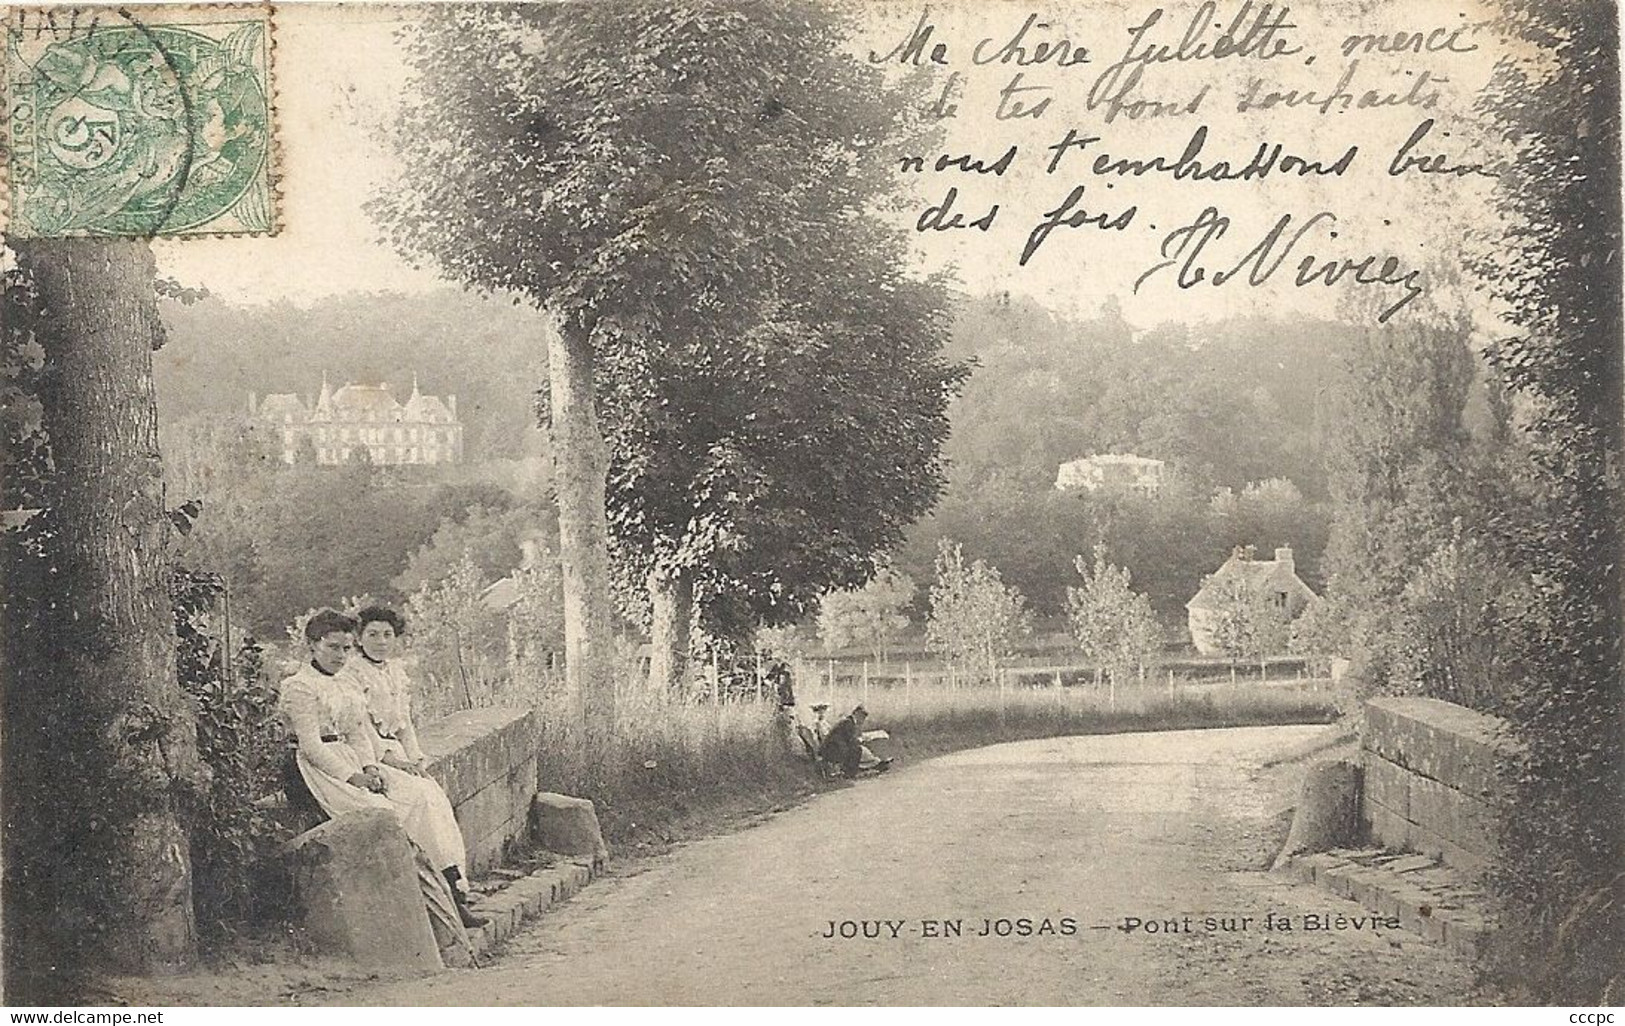 5c
POSTES
Ma chère Juliette, merci
de tes bons souhaits
nous t'embrassons bien
des fois.
JOUY-EN-JOSAS — Pont sur la Bièvre
www.delcampe.net
cccpc